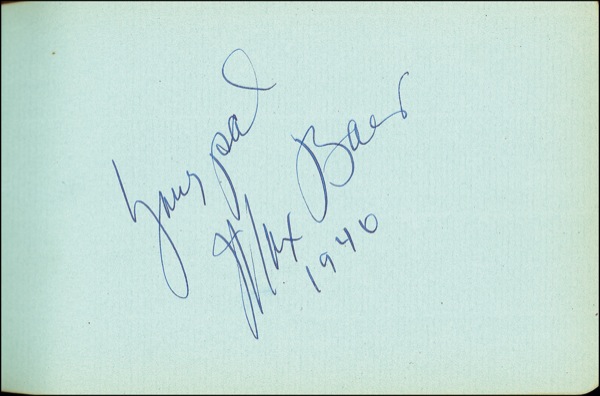 Your pal
Max Baer
1940